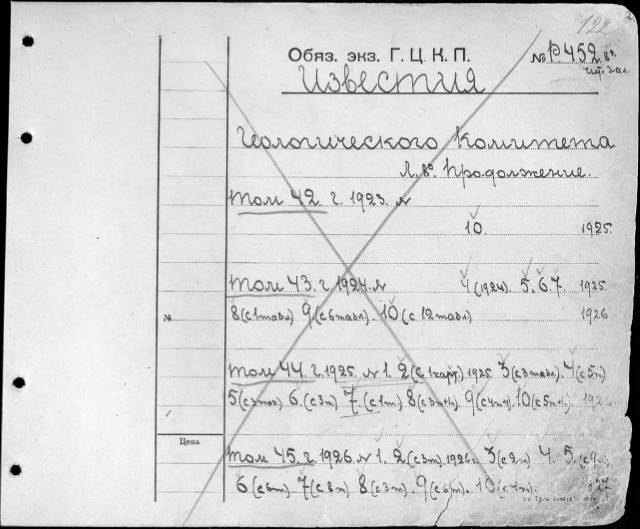 122
Обяз. экз. Г. Ц. К. П.
№ Р.452 8°
Чит. зал.
Известия
Геологического Комитета
Л. 8° Продолжение.
Том 42. г. 1923. №
10 1925.
Том 43. г. 1924. № 4 (1924). 5. 6. 7. 1925
№
8 (с 1 табл) 9. (с 6 табл). 10 (с 12 табл) 1926
Том 44. г. 1925. № 1. 2 (с 1 карт.) 1925. 3 (с 3 табл.) 4 (с 5 т)
5 (с 3 табл) 6. (с 3 т) 7. (с 1 т) 8 (с 3 т) 9. (с 4 т) 10 (с 5 т) 1926
Цена
Том 45. г. 1926. № 1. 2 (с 3 т). 1926 г. 3 (с 2 т) 4. 5. (с 9
6 (с 6 т). 7 (с 8 т) 8 (с 3 т). 9 (с 6 т). 10 (с 4 т). 1927